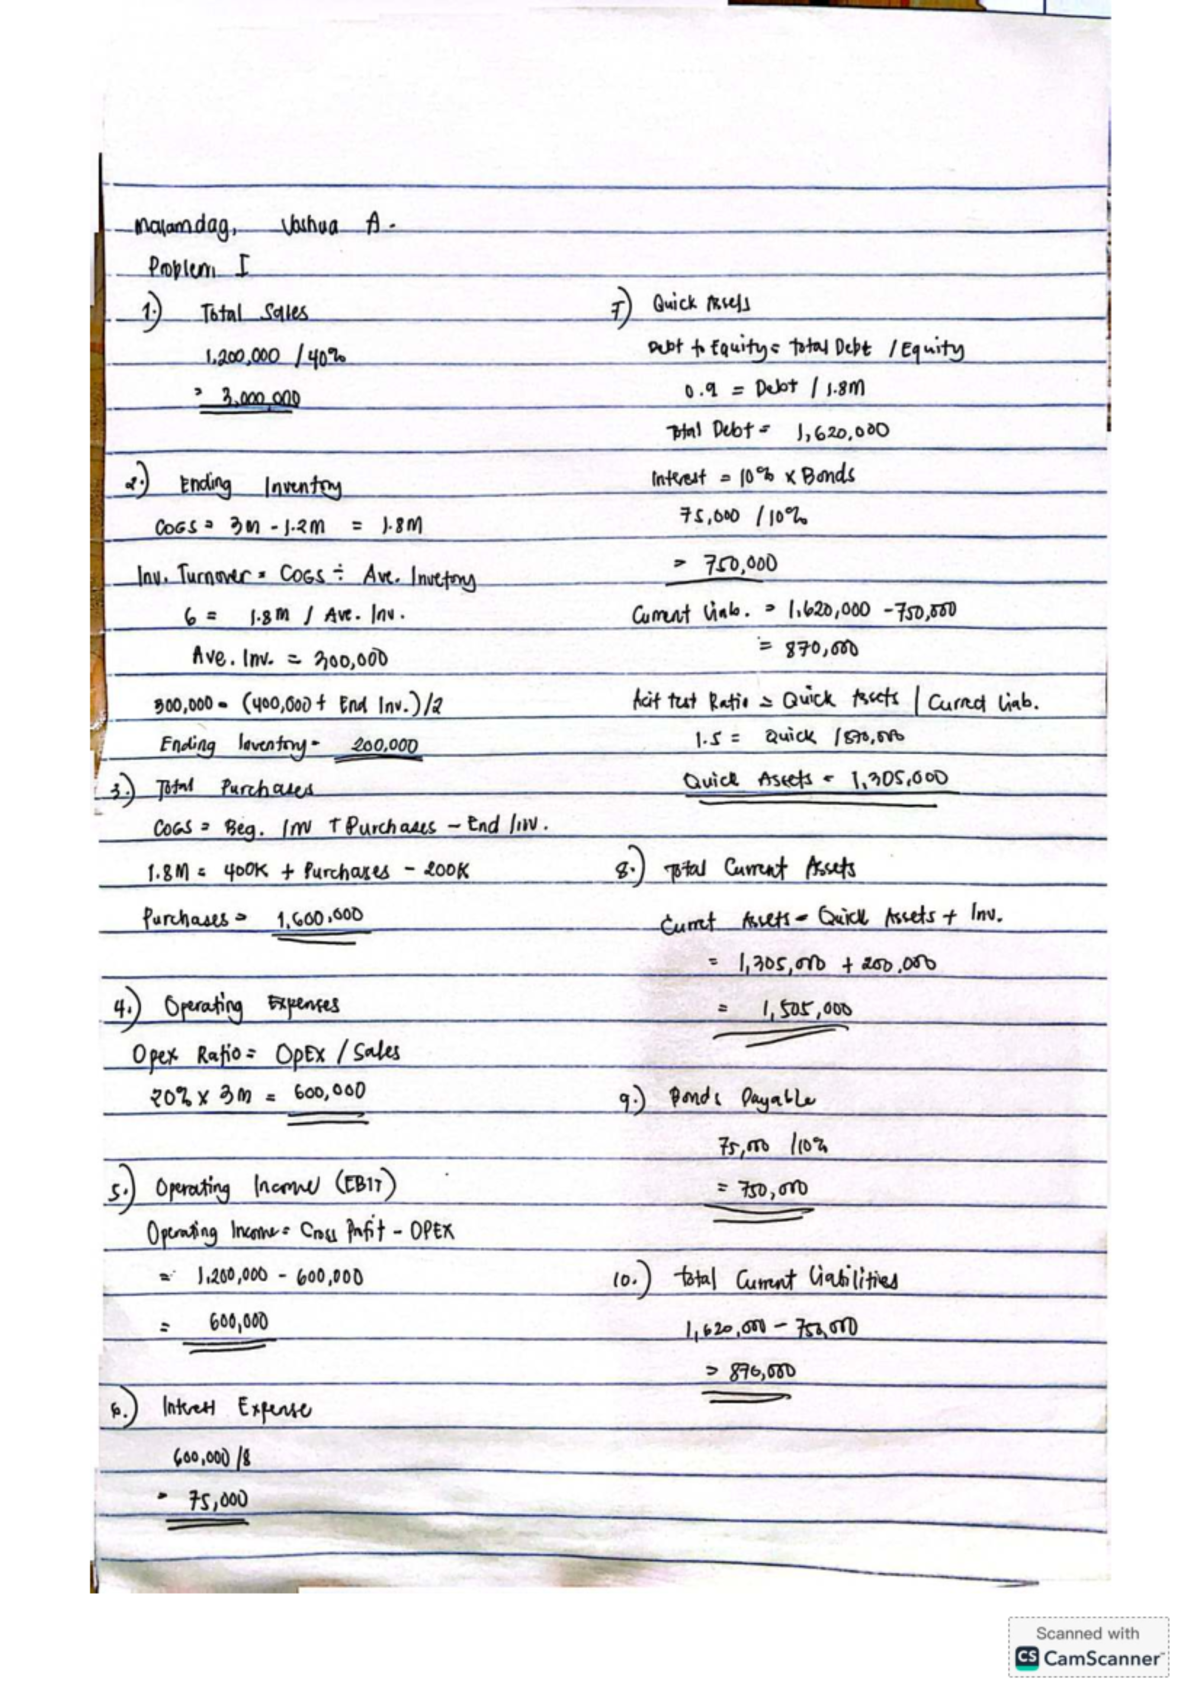 Malamdag, Joshua A.
Problem I
1.) Total Sales
1,200,000 / 40%
= 3,000,000
2.) Ending Inventory
COGS = 3M - 1.2M = 1.8M
Inv. Turnover = COGS ÷ Ave. Invetory
6 = 1.8M / Ave. Inv.
Ave. Inv. = 300,000
300,000 = (400,000 + End Inv.)/2
Ending Inventory = 200,000
3.) Total Purchases
COGS = Beg. Inv + Purchases - End Inv.
1.8M = 400K + Purchases - 200K
Purchases = 1,600,000
4.) Operating Expenses
Opex Ratio = OpEx / Sales
20% x 3M = 600,000
5.) Operating Income (EBIT)
Operating Income = Gross Profit - OPEX
= 1,200,000 - 600,000
= 600,000
6.) Interest Expense
600,000 / 8
= 75,000
7) Quick Assets
Debt to Equity = Total Debt / Equity
0.9 = Debt / 1.8M
Total Debt = 1,620,000
Interest = 10% x Bonds
75,000 / 10%
= 750,000
Current Liab. = 1,620,000 - 750,000
= 870,000
Acit test Ratio = Quick Assets / Curred Liab.
1.5 = Quick / 870,000
Quick Assets = 1,305,000
8.) Total Current Assets
Curret Assets = Quick Assets + Inv.
= 1,305,000 + 200,000
= 1,505,000
9.) Bonds Payable
75,000 / 10%
= 750,000
10.) Total Current Liabilities
1,620,000 - 750,000
= 870,000
Scanned with
CS CamScanner